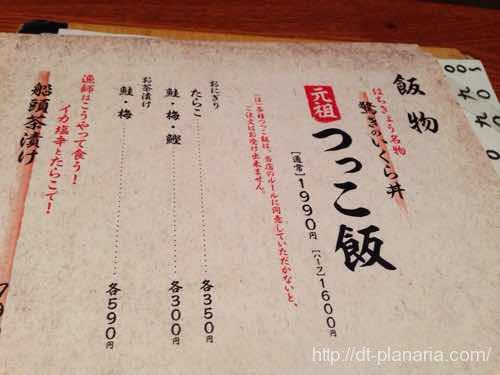 飯物
はちきょう名物
驚きのいくら丼
元祖
つっこ飯
[通常]1990円
[ハーフ]1600円
ご注文はお受け出来ません。
おにぎり
たらこ 各350円
鮭・梅・鰹 各300円
お茶漬け
鮭・梅 各590円
漁師はこうやって食う！
イカ塩辛とたらこで！
船頭茶漬け
http://dt-planaria.com/